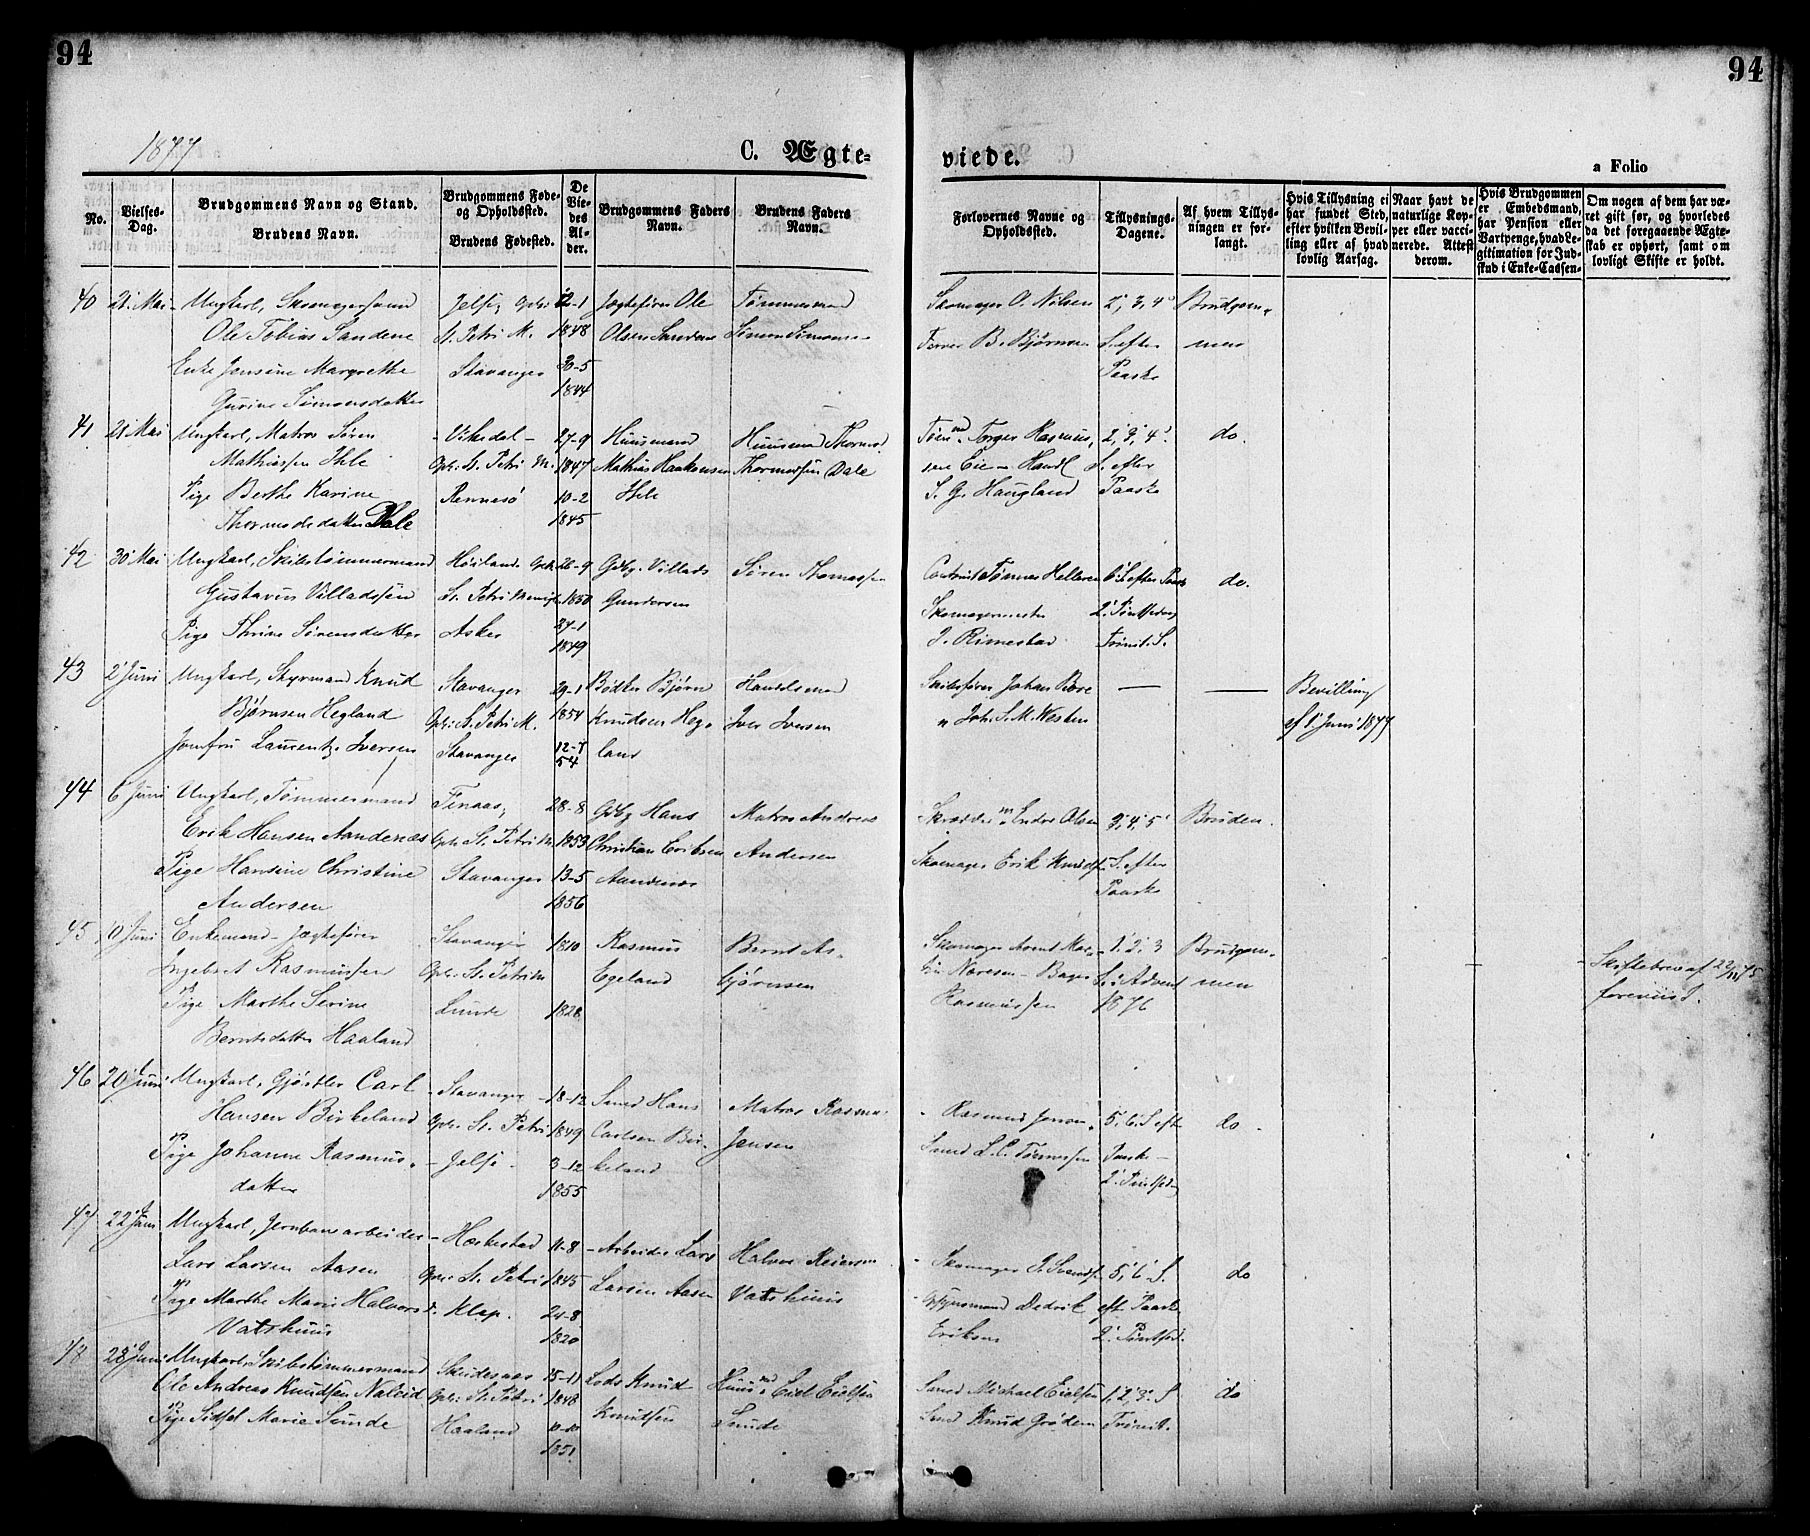 94
94
1877
C. Ægte-
viede.
a Folio
No.
Vielses-Dag.
Brudgommens Navn og Stand.
Brudens Navn.
Brudgommens Føde- og Opholdssted.
Brudens Fødested.
De Viedes Alder.
Brudgommens Faders Navn.
Brudens Faders Navn.
Forlovernes Navne og Opholdssted.
Tillysnings-Dagene.
Af hvem Tillysningen er forlangt.
Hvis Tillysning ei har fundet Sted, efter hvilken Bevilling eller af hvad lovlig Aarsag.
Naar havt de naturlige Kopper eller vaccinerede. Attest derom.
Hvis Brudgommen er Embedsmand, har Pension eller Vartpenge, hvad Legitimation for Indskud i Enke-Cassen-
Om nogen af dem har været gift før, og hvorledes da det foregaaende Ægteskab er ophørt, samt om lovligt Skifte er holdt.
40 21 Mai Ungkarl, Skomagersvend Jelse, Oph: 12-1 Jægtefører Ole Tømmermand Skomager O. Nilsen 2', 3, 4' Brudgom-
Ole Tobias Sandene St. Petri M. 1848 Olsen Sandene Simon Simonsen B. Bjørnsen S. efter men
Enke Jensine Margrethe Stavanger 30-5 Paaske
Gurine Simonsdatter 1844
41 21 Mai Ungkarl, Matros Søren Vikedal 27-9 Huusmand Huusmand Thormod Torger Rasmus- 2', 3', 4' do.
Mathiassen Ihle Oph: St. Petri M. 1847 Mathias Haakensen Thormodsen Dale sen Eie - Handl S. efter
Pige Berthe Karine Rennesö 10-2 Ihle S. G. Haugland Paaske
Thormodsdatter Dale 1845
42 30 Mai Ungkarl, Skibstømmermand Höiland Oph: 26-9 Gdbr. Villads Søren Thomassen Tønnes Helleren 6' S. efter Paaske do.
Gustavus Villadssen St. Petri Menigh. 1850 Gundersen Skomagermester 2' Pintsedag
Pige Thrine Sørensdatter Asker 27-1 J. Rimestad Trinit. S.
1849
43 2' Juni Ungkarl, Styrmand Knud Stavanger 29-1 Bødker Bjørn Handelsmand Skibsfører Johan Bore — — Bevilling
Bjørnsen Hegland Oph: St. Petri M. 1854 Knudsen Heg- Iver Iversen " Joh. S. M. Westen af 1' Juni 1877
Jomfru Laurentze Iversen Stavanger 12-7 land
54
44 6 Juni Ungkarl, Tømmermand Finaas, 28-8 Gdbr Hans Matros Andreas Skrædder Endre Olsen 3', 4', 5' Bruden.
Erik Hansen Aandenæs Oph. St. Petri M. 1853 Christian Eriksen Andersen Skomager Erik Knudsen S. efter
Pige Hansine Christine Stavanger 13-5 Aandenæs Paaske
Andersen 1856
45 10 Juni Enkemand - Jægtefører Stavanger 1810 Rasmus Bernt As- Skomager 1', 2', 3 Brudgom- - - Skiftebrev af 22/11 75
Ingebret Rasmussen Oph: St. Petri M Egeland bjørnsen Næresen - Bager S. i Advent men foreviist.
Pige Marthe Serine Lunde 1828 Rasmussen 1876
Berntsdatter Haaland
46 20' Juni Ungkarl, Gjørtler Carl Stavanger 18-12 Smed Hans Matros Rasmus Rasmus Jensen 5, 6. S. eft do
Hansen Birkeland Oph. St. Petri 1849 Carlsen Bir- Jensen Smed L. C. Tønnessen Paaske -
Pige Johanne Rasmus- Jelse 3-12 keland 2' Pintsedag
datter 1855
47 22' Juni Ungkarl, Jernbanearbeider Hæskestad 11-8 Arbeider Lars Halvor Reiersen Skomager G. Svendsen 5', 6' S. do
Lars Larsen Aasen Oph: St. Petri 1845 Larsen Aasen Vatshuus Opsynsmand Dedrik eft. Paaske
Pige Marthe Marie Halvorsd. Klep. 24-8 Eriksen 2' Pintsed.
Vatshuus 1820
48 28' Juni Ungkarl, Skibstømmermand Skudesnæs 15-11 Lods Knud Huusmd Eiel Eielsen Smed Michael Eielsen 1', 2', 3' S do
Ole Andreas Knudsen Naleid Oph: St. Petri 1848 Knudsen Sunde Smed Knud Grødem Trinit.
Pige Sidsel Marie Sunde Haaland 10-10
1851